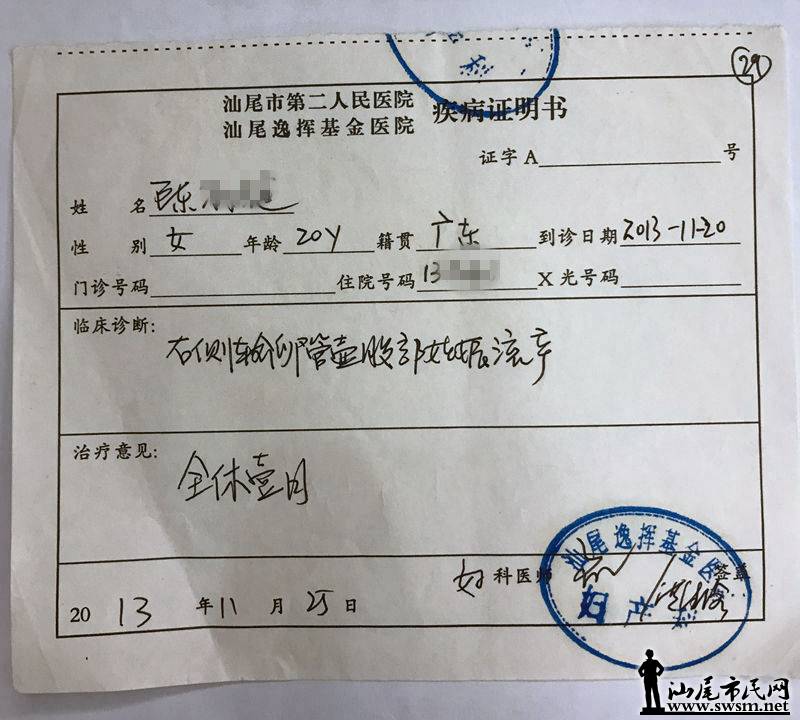 29
产科
汕尾市第二人民医院
汕尾逸挥基金医院 疾病证明书
证字A 号
姓 名 陈
性 别 女 年龄 20y 籍贯 广东 到诊日期 2013-11-20
门诊号码 住院号码 13 X光号码
临床诊断:
右侧输卵管壶腹部妊娠流产
治疗意见:
全休壹月
妇科医师 签章
汕尾逸挥基金医
妇产科
2013年11月25日
汕尾市民网
www.swsm.net